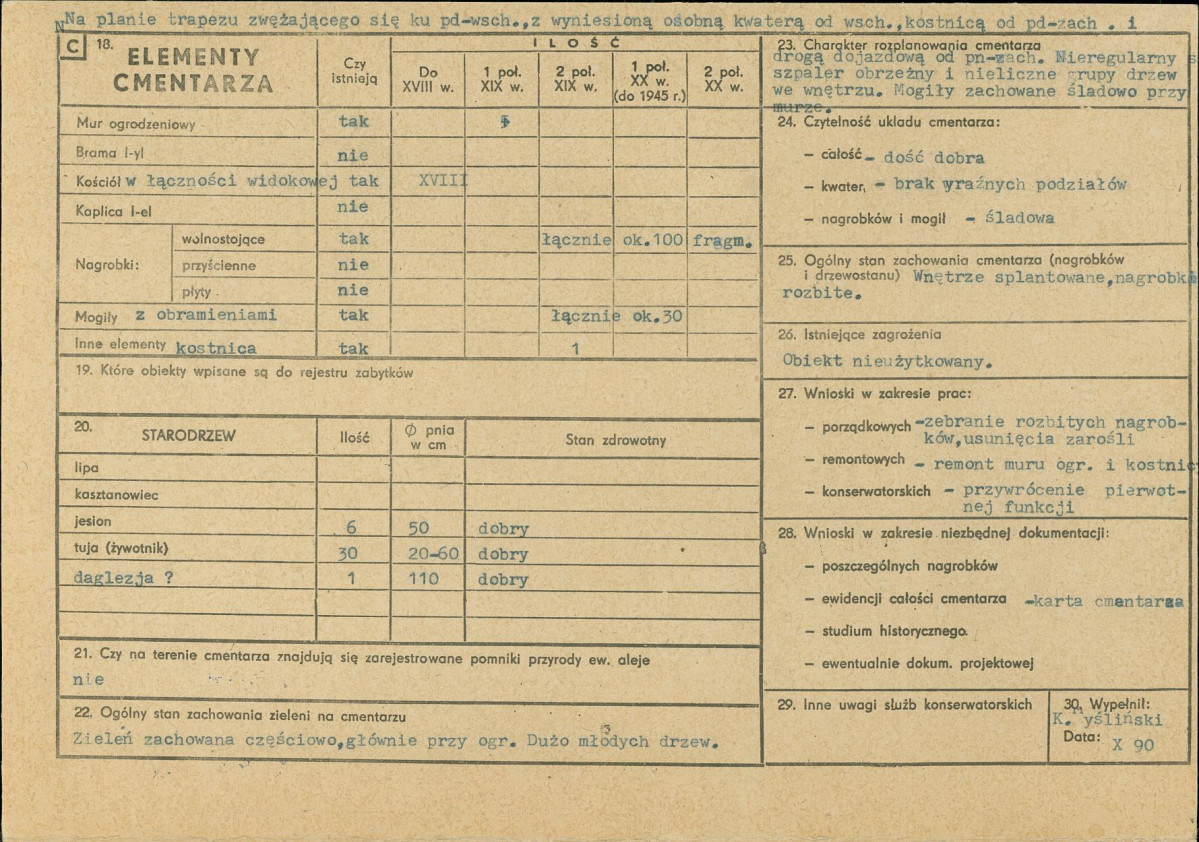 Na planie trapezu zwężającego się ku pd-wsch.,z wyniesioną osobną kwaterą od wsch.,kostnicą od pd-zach . i
C 18. ELEMENTY CMENTARZA
Czy istnieją
ILOŚĆ
Do XVIII w.
1 poł. XIX w.
2 poł. XIX w.
1 poł. XX w. (do 1945 r.)
2 poł. XX w.
Mur ogrodzeniowy tak
Brama I-yl nie
Kościół w łączności widokowej tak XVIII
Kaplica I-el nie
Nagrobki:
wolnostojące tak łącznie ok.100 fragm.
przyścienne nie
płyty nie
Mogiły z obramieniami tak łącznie ok.30
Inne elementy kostnica tak 1
19. Które obiekty wpisane są do rejestru zabytków
20. STARODRZEW Ilość Ø pnia w cm Stan zdrowotny
lipa
kasztanowiec
jesion 6 50 dobry
tuja (żywotnik) 30 20-60 dobry
daglezja ? 1 110 dobry
21. Czy na terenie cmentarza znajdują się zarejestrowane pomniki przyrody ew. aleje
nie
22. Ogólny stan zachowania zieleni na cmentarzu
Zieleń zachowana częściowo,głównie przy ogr. Dużo młodych drzew.
23. Charakter rozplanowania cmentarza
drogą dojazdową od pn-zach. Nieregularny
szpaler obrzeżny i nieliczne grupy drzew
we wnętrzu. Mogiły zachowane śladowo przy
murze.
24. Czytelność układu cmentarza:
– całość – dość dobra
– kwater, – brak yraźnych podziałów
– nagrobków i mogił – śladowa
25. Ogólny stan zachowania cmentarza (nagrobków
i drzewostanu) Wnętrze splantowane,nagrobki
rozbite.
26. Istniejące zagrożenia
Obiekt nieużytkowany.
27. Wnioski w zakresie prac:
– porządkowych -zebranie rozbitych nagrob-
ków,usunięcia zarośli
– remontowych – remont muru ogr. i kostnicy
– konserwatorskich – przywrócenie pierwot-
nej funkcji
28. Wnioski w zakresie niezbędnej dokumentacji:
– poszczególnych nagrobków
– ewidencji całości cmentarza -karta cmentarza
– studium historycznego.
– ewentualnie dokum. projektowej
29. Inne uwagi służb konserwatorskich
30. Wypełnił:
K. yśliński
Data: X 90